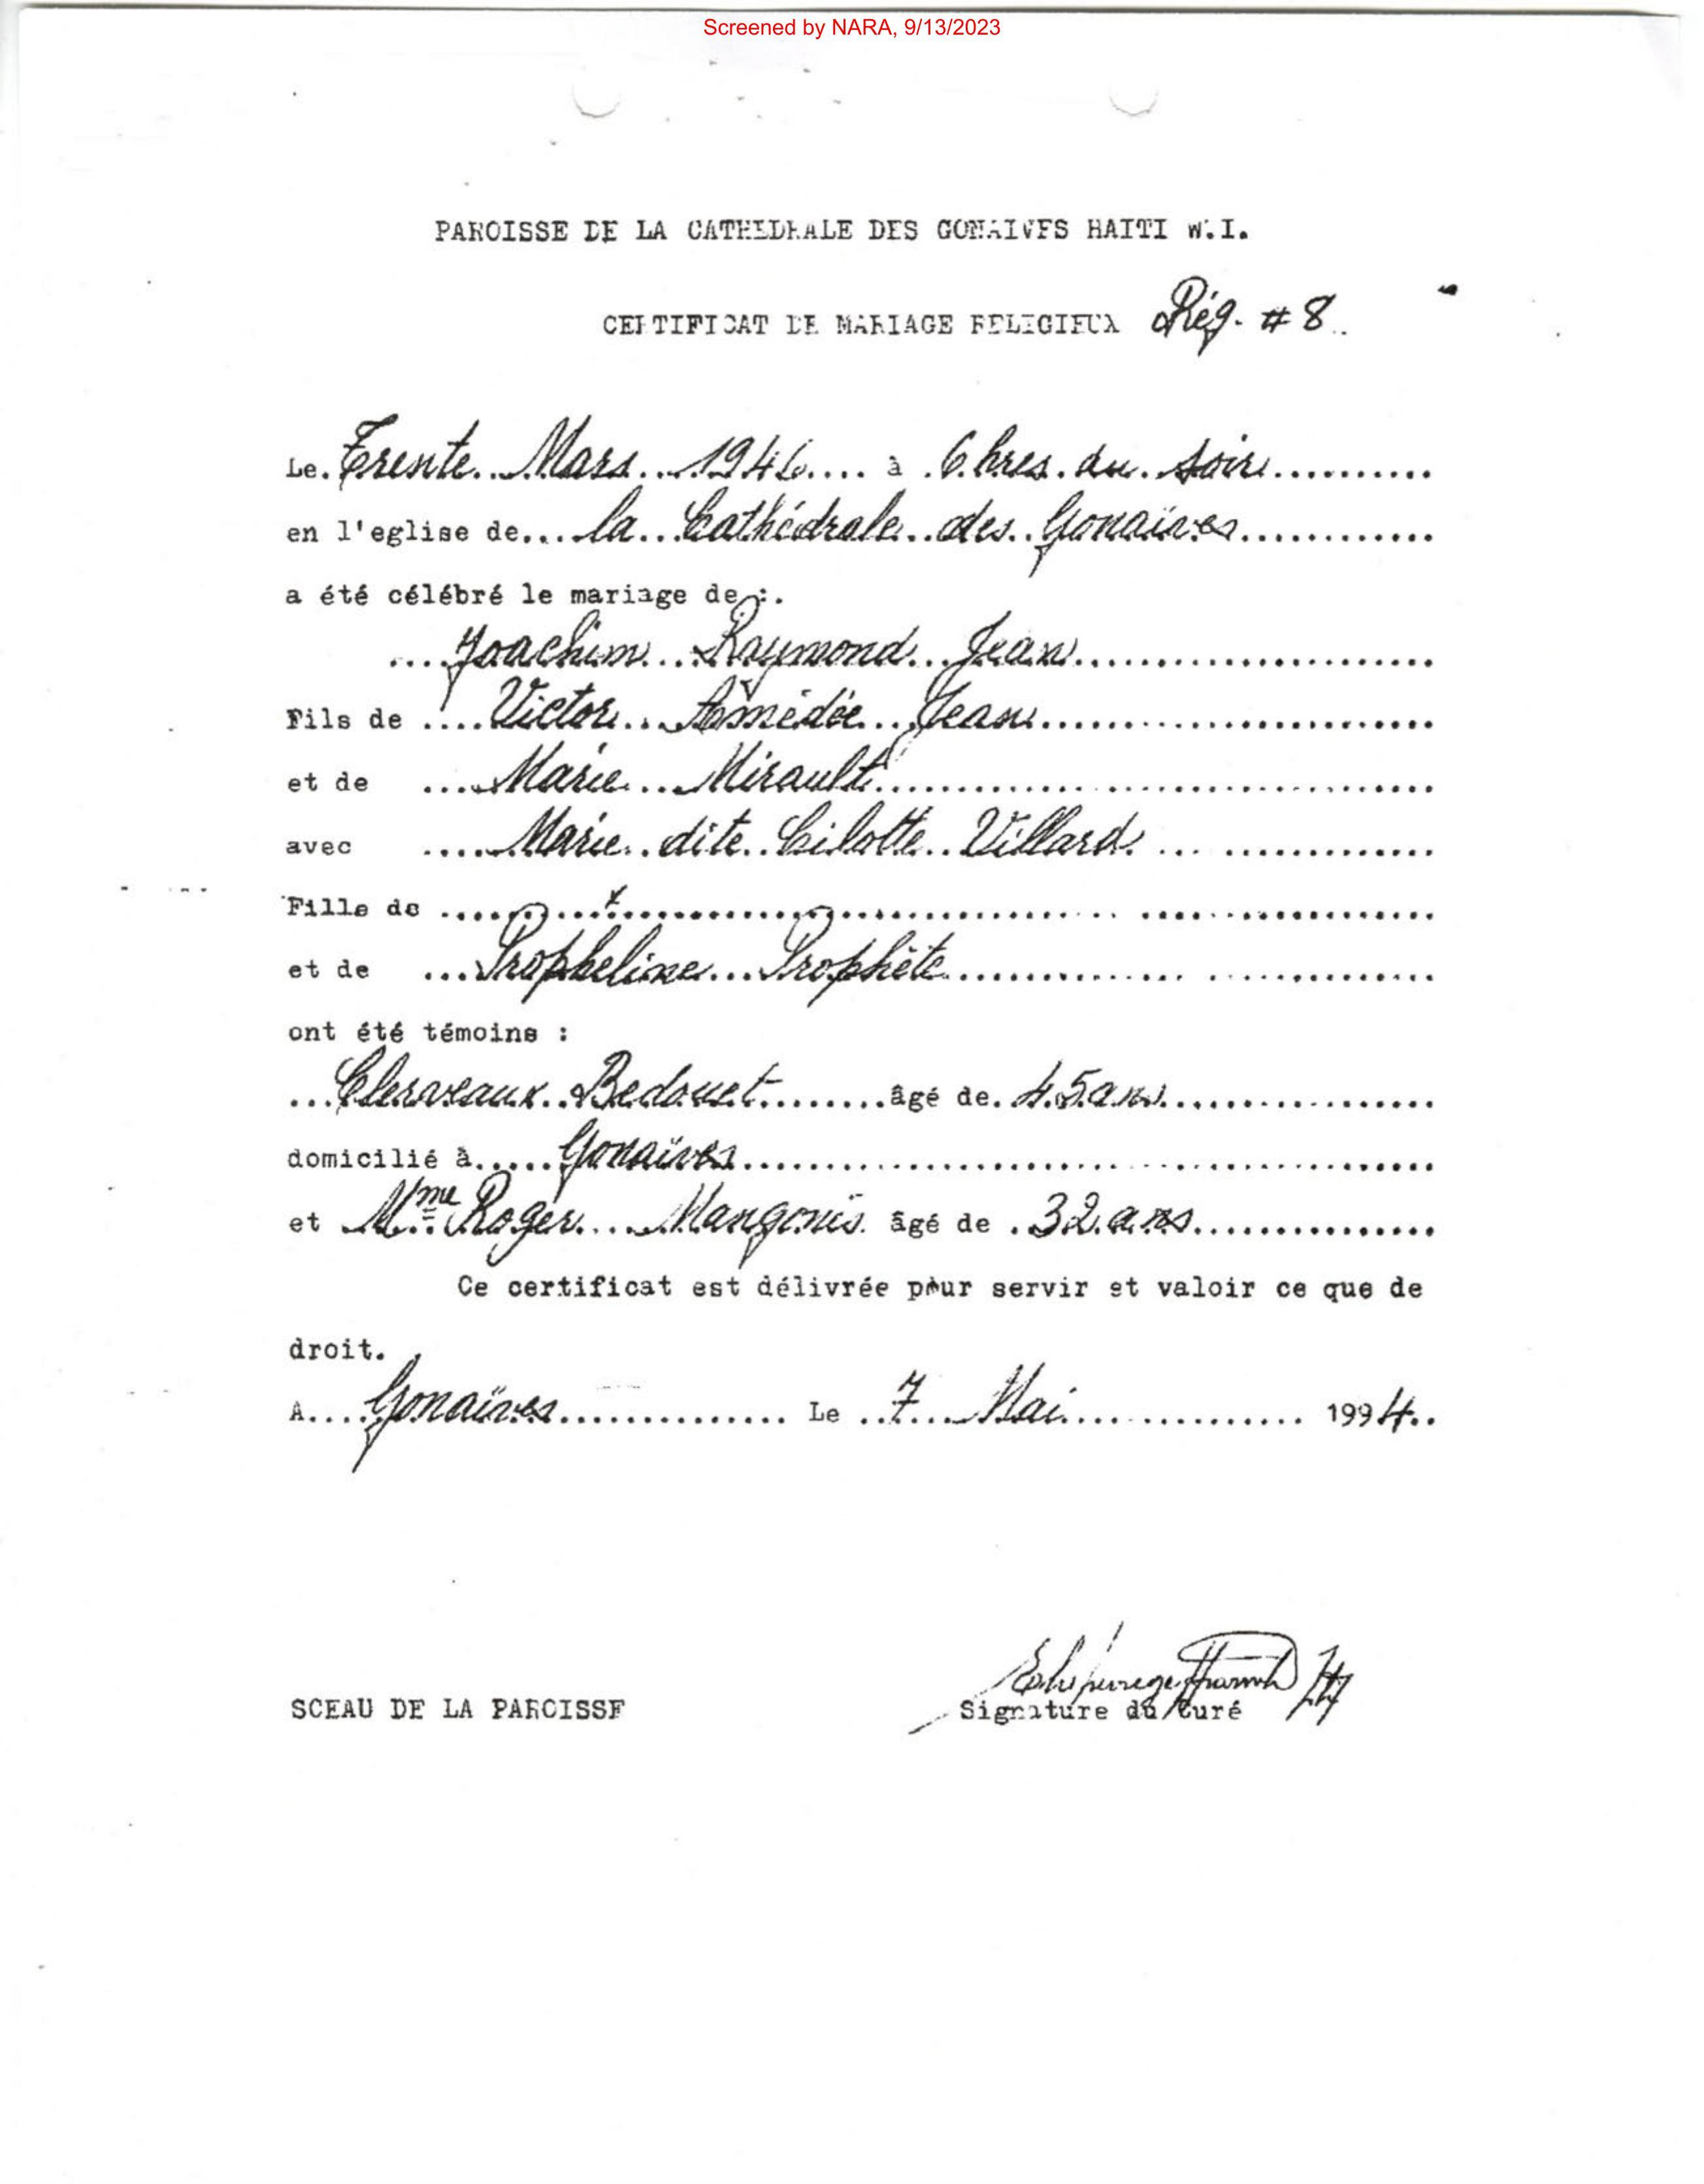 Screened by NARA, 9/13/2023
PAROISSE DE LA CATHEDRALE DES GONAIVES HAITI W.I.
CERTIFICAT DE MARIAGE RELIGIEUX Rég. # 8
Le. Trente Mars 1946 à 6 hres. du soir
en l'eglise de la Cathédrale des Gonaïves
a été célébré le mariage de :.
Joachim Raymond Jean
Fils de Victor Amédée Jean
et de Marie Mirault
avec Marie dite Cilotte Villard
Fille de x
et de Propheline Prophète
ont été témoins :
Clerveaux Bedouet âgé de 45 ans
domicilié à Gonaïves
et Mme Roger Mangonès âgé de 32 ans
Ce certificat est délivrée pour servir et valoir ce que de
droit.
A Gonaïves Le 7 Mai 1994
SCEAU DE LA PAROISSE Signature du Curé